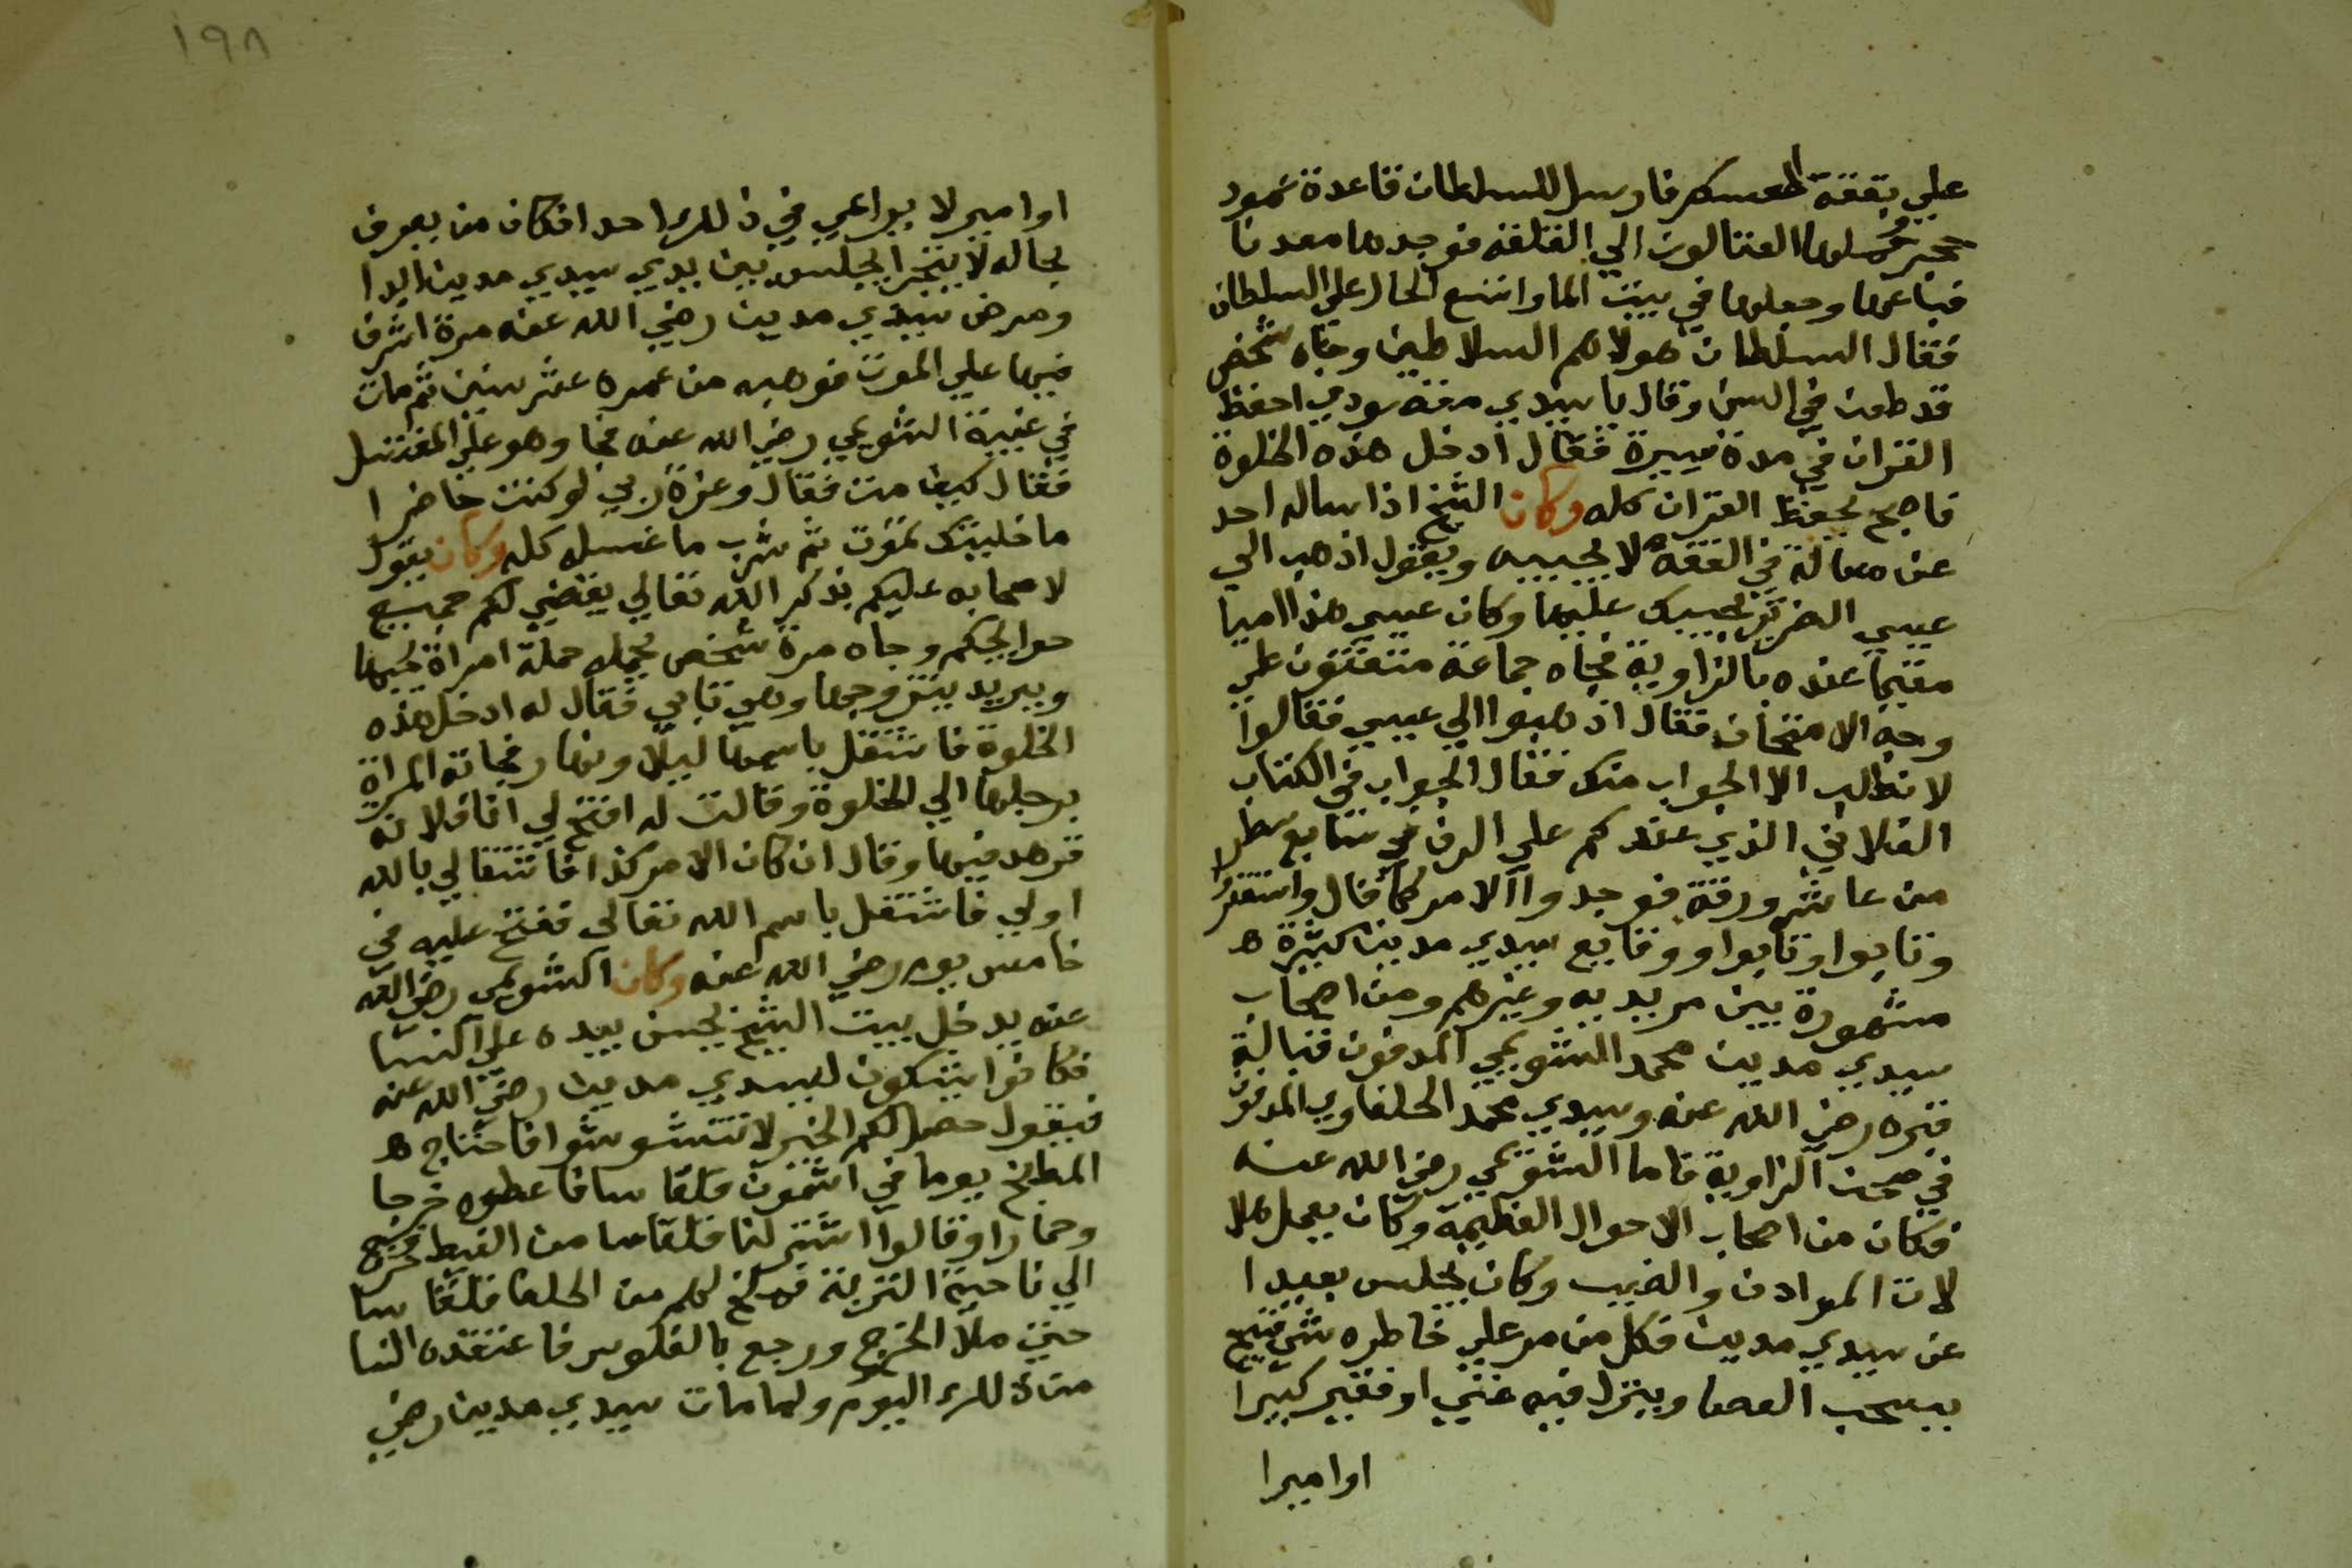 علي بقفة العسكر فارسل للسلطان قاعدة عمود
حجر حملوها العتالون الي القلعة فوجدها معدنا
فباعها وجعلوها في بيت المال واتسع الحال علي السلطان
فقال السلطان هولا هم السلاطين وجاه شخص
قد طعن في السن وقال يا سيدي مقصودي احفظ
القران في مدة يسيرة فقال ادخل هذه الخلوة
فاصبح يحفظ القران كله وكان الشيخ اذا ساله احد
عن مسالة في الفقه لا يجيبه ويقول اذهب الي
عيسي الضرير يجيبك عليها وكان عيسي هذا اميا
مقيما عنده بالزاوية فجاه جماعة متعنتون علي
وجه الامتحان فقال اذهبوا الي عيسي فقالوا
لا نطلب الا الجواب منك فقال الجواب في الكتاب
الفلاني الذي عندكم علي الرف في سابع سطر
من عاشر ورقة فوجدوا الامر كما قال واستغفروا
وتابوا وتابوا ووقايع سيدي مدين كثيرة ه
مشهورة بين مريديه وغيرهم ومن اصحاب
سيدي مدين محمد الشويمي المدفون قبالة
قبره رضي الله عنه وسيدي محمد الحلفاوي المدفون
في صحن الزاوية فاما الشويمي رضي الله عنه
فكان من اصحاب الاحوال العظيمة وكان يعمل هلا
لات الموادن والضبب وكان يجلس بعيدا
عن سيدي مدين فكل من مر علي خاطره شي قبيح
يسحب العصا وينزل فيه غني او فقير كبيرا
او اميرا
١٩٨
او امير لا يراعي في ذلك احدا فكان من يعرف
بحاله لا يتجرا يجلس بين يدي سيدي مدين ابدا
ومرض سيدي مدين رضي الله عنه مرة اشرف
فيها علي الموت فوهبه من عمره عشر سنين ثم مات
في غيبة الشويمي رضي الله عنه فجا وهو علي المغتسل
فقال كيف مت فقال وعزة ربي لو كنت حاضرا
ما خليتك تموت ثم شرب ما غسله كله وكان يقول
لاصحابه عليكم بذكر الله تعالي يقضي لكم جميع
حوايجكم وجاه مرة شخص يحمله حملة امراة يحبها
ويريد يتزوجها وهي تابي فقال له ادخل هذه
الخلوة فاشتغل باسمها ليلا ونهار فجاته المراة
برجلها الي الخلوة وقالت له افتح لي انا فلانه
فزهد فيها وقال ان كان الامر كذا فاشتغالي بالله
اولي فاشتغل باسم الله تعالي ففتح عليه في
خامس يوم رضي الله عنه وكان الشويمي رضي الله
عنه يدخل بيت الشيخ يحسس بيده علي النسا
فكانوا يشكون لسيدي مدين رضي الله عنه
فيقول حصل لكم الخير لا تتشوشوا فاحتاج ه
المطبخ يوما في اشمون قلقاسا فاعطوه خرجا
وحمارا وقالوا اشتر لنا قلقاسا من الغيط فخرج
الي ناحية التربة فسلخ لهم من الحلفا قلقاسا
حتي ملا الخرج ورجع بالفلوس فاعتقده النسا
من ذلك اليوم ولما مات سيدي مدين رضي